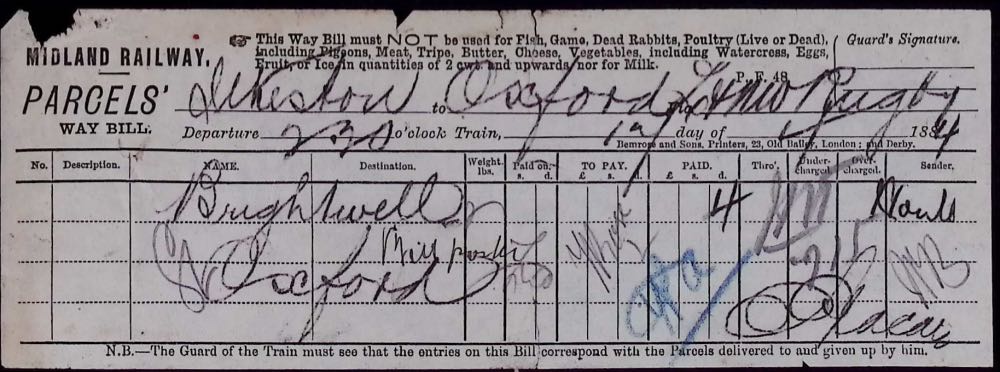 MIDLAND RAILWAY.
PARCELS' WAY BILL.
☞ This Way Bill must NOT be used for Fish, Game, Dead Rabbits, Poultry (Live or Dead),
including Pigeons, Meat, Tripe, Butter, Cheese, Vegetables, including Watercress, Eggs,
Fruit, or Ice in quantities of 2 cwt. and upwards, nor for Milk.
Guard's Signature.
P. F. 48
Ilkeston to Oxford Rugby
Departure 230 o'clock Train, day of 1884
Bemrose and Sons, Printers, 23, Old Bailey, London; and Derby.
No. Description. NAME. Destination. Weight. lbs. Paid on. s. d. TO PAY. £ s. d. PAID. £ s. d. Thro'. Under-charged. Over-charged. Sender.
Brightwell 4
Bill poster
Oxford
N.B.—The Guard of the Train must see that the entries on this Bill correspond with the Parcels delivered to and given up by him.